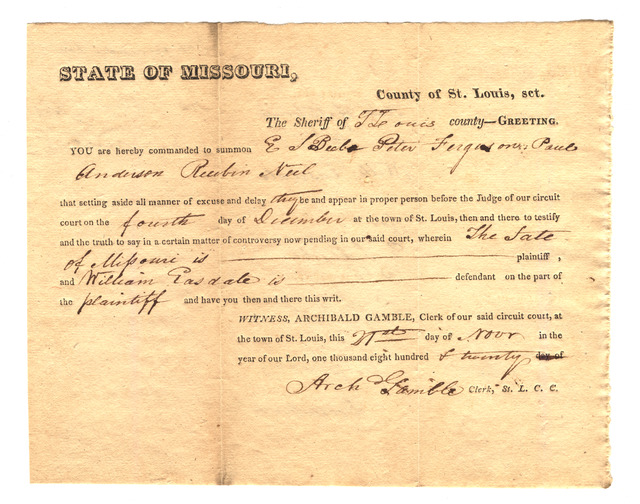 STATE OF MISSOURI,
County of St. Louis, sct.
The Sheriff of St Louis county—GREETING.
YOU are hereby commanded to summon E S Beebe Peter Ferguson Paul
Anderson Reubin Neel
that setting aside all manner of excuse and delay they be and appear in proper person before the Judge of our circuit
court on the fourth day of December at the town of St. Louis, then and there to testify
and the truth to say in a certain matter of controversy now pending in our said court, wherein The State
of Missouri is plaintiff,
and William Easdale is defendant on the part of
the plaintiff and have you then and there this writ.
WITNESS, ARCHIBALD GAMBLE, Clerk of our said circuit court, at
the town of St. Louis, this 21st day of Novr in the
year of our Lord, one thousand eight hundred & twenty day of
Arch Gamble Clerk, St. L. C. C.